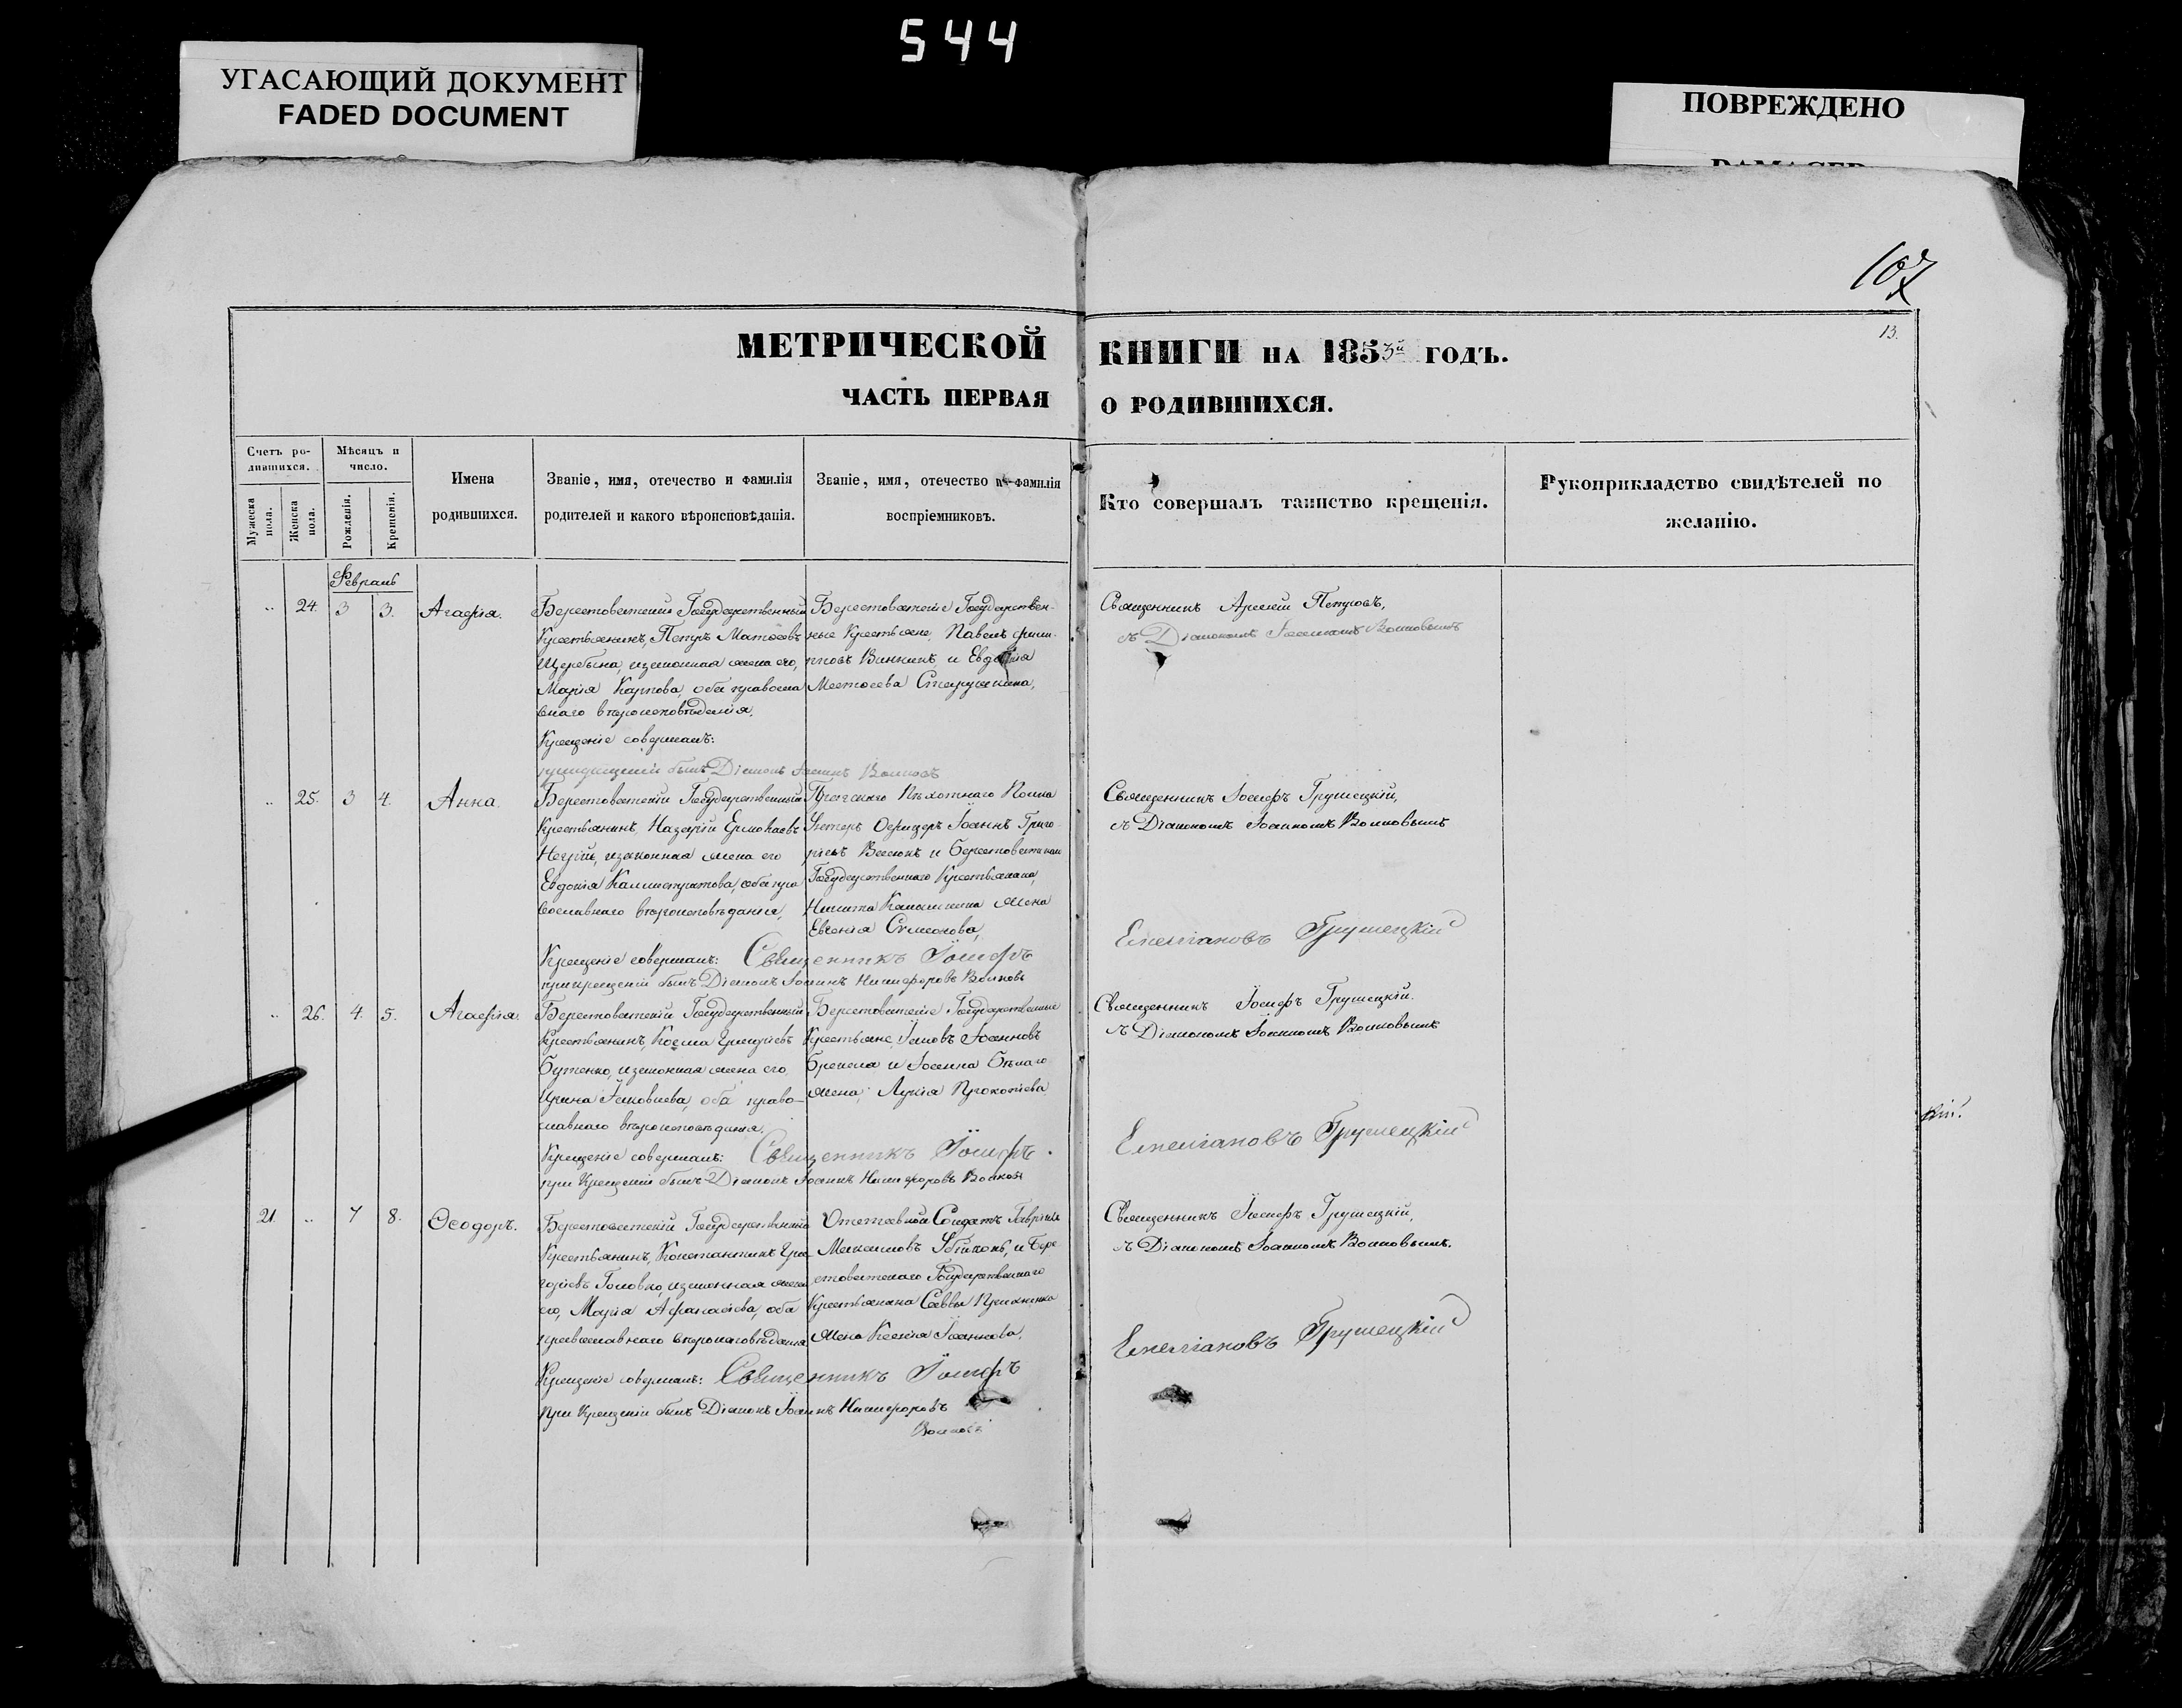 544
УГАСАЮЩИЙ ДОКУМЕНТ
FADED DOCUMENT
ПОВРЕЖДЕНО
107
13.
МЕТРИЧЕСКОЙ КНИГИ НА 1853й ГОДЪ.
ЧАСТЬ ПЕРВАЯ О РОДИВШИХСЯ.
Счетъ ро-
дившихся.
Мужеска пола.
Женска пола.
Мѣсяцъ и
число.
Рожденія.
Крещенія.
Имена
родившихся.
Званіе, имя, отечество и фамилія
родителей и какого вѣроисповѣданія.
Званіе, имя, отечество и фамилія
воспріемниковъ.
Кто совершалъ таинство крещенія.
Рукоприкладство свидѣтелей по
желанію.
Февраль
24. 3 3. Агафія.
Берестоватскій Государственный
Крестьянинъ, Петръ Матѳеевъ
Щербина, изаконная жена его,
Марія Карпова, оба правосла
внаго вѣроисповѣданія.
Крещеніе совершалъ:
Діаконъ Іоаннъ Волковъ
Берестоватскіе Государствен-
ные Крестьяне, Павелъ Фили-
повъ Винникъ и Евдокія
Матѳеева
Священникъ Петровъ,
съ Діакономъ Іоанномъ Волковымъ
25. 3 4. Анна.
Берестоватскій Государственный
Крестьянинъ, Назарій Ермолаевъ
Негрій, изаконная жена его
Евдокія Калистратова, оба пра
вославнаго вѣроисповѣданія,
Крещеніе совершалъ: Священникъ Іосифъ
прикрещеніи былъ Діаконъ Іоаннъ Никифоровъ Волковъ
Пѣхотнаго Полка
Унтеръ Офицеръ Іоаннъ Григо-
рьевъ и Берестоватскаго
Государственнаго Крестьянина,
Никита жена
Евгенія Сѵмеонова,
Священникъ Іосифъ Грушецкій,
съ Діакономъ Іоанномъ Волковымъ
Емеліановъ Грушецкій
26. 4. 5. Агафія.
Берестоватскій Государственный
Крестьянинъ, Косма Григорьевъ
Бутенко, изаконная жена его
Ирина Іаковлева, оба право-
славнаго вѣроисповѣданія.
Крещеніе совершалъ: Священникъ Іосифъ
при Крещеніи былъ Діаконъ Іоаннъ Никифоровъ Волковъ
Берестоватскіе Государственные
Крестьяне, Іаковъ Іоанновъ
и Іоанна Бѣлаго
жена, Лукія Прокопіева
Священникъ Іосифъ Грушецкій.
съ Діакономъ Іоанномъ Волковымъ
Емеліановъ Грушецкій
кій.
21. 7 8. Ѳеодоръ.
Берестоватскій Государственный
Крестьянинъ, Константинъ Гри
горіевъ Головко, изаконная жена
его, Марія Афанасіева, оба
православнаго вѣроисповѣданія
Крещеніе совершалъ: Священникъ Іосифъ
при Крещеніи былъ Діаконъ Іоаннъ Никифоровъ
Волковъ
Отставной Солдатъ Гавріилъ
Максимовъ и Бере
стоватскаго Государственнаго
Крестьянина Саввы
жена Ксенія Іоаннова.
Священникъ Іосифъ Грушецкій,
съ Діакономъ Іоанномъ Волковымъ.
Емеліановъ Грушецкій